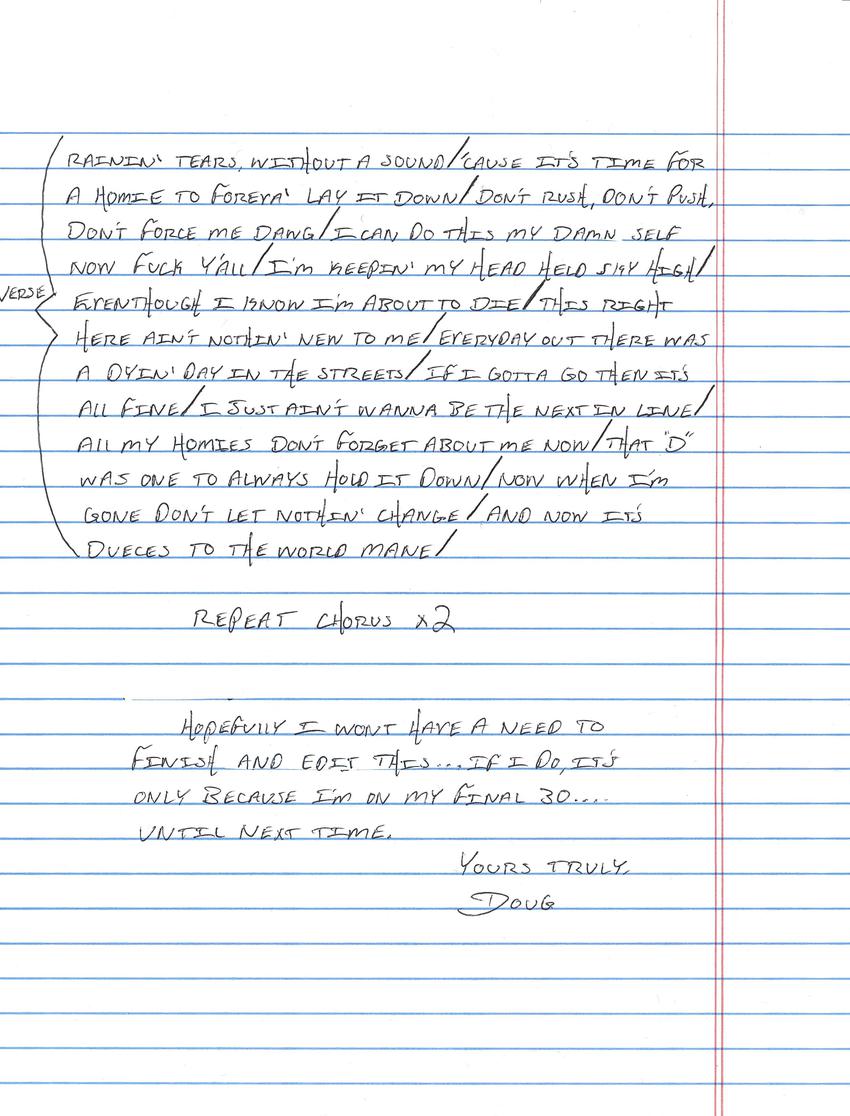 RAININ' TEARS, WITHOUT A SOUND/'CAUSE IT'S TIME FOR
A HOMIE TO FOREVA' LAY IT DOWN/DON'T RUSH, DON'T PUSH,
DON'T FORCE ME DAWG/I CAN DO THIS MY DAMN SELF
NOW FUCK Y'ALL/I'M KEEPIN' MY HEAD HELD SKY HIGH/
VERSE EVENTHOUGH I KNOW I'M ABOUT TO DIE/THIS RIGHT
HERE AIN'T NOTHIN' NEW TO ME/EVERYDAY OUT THERE WAS
A DYIN' DAY IN THE STREETS/IF I GOTTA GO THEN IT'S
ALL FINE/I JUST AIN'T WANNA BE THE NEXT IN LINE/
ALL MY HOMIES DON'T FORGET ABOUT ME NOW/THAT "D"
WAS ONE TO ALWAYS HOLD IT DOWN/NOW WHEN I'M
GONE DON'T LET NOTHIN' CHANGE/AND NOW IT'S
DUECES TO THE WORLD MANE/
REPEAT CHORUS x2
HOPEFULLY I WONT HAVE A NEED TO
FINISH AND EDIT THIS...IF I DO, IT'S
ONLY BECAUSE I'M ON MY FINAL 30....
UNTIL NEXT TIME.
YOURS TRULY,
DOUG